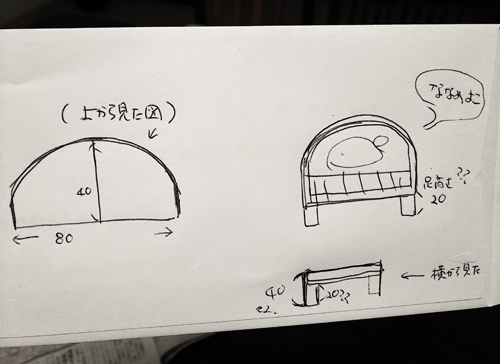 (上から見た図)
40
80
ななめよこ
足高さ??
20
40
20??
横から見た